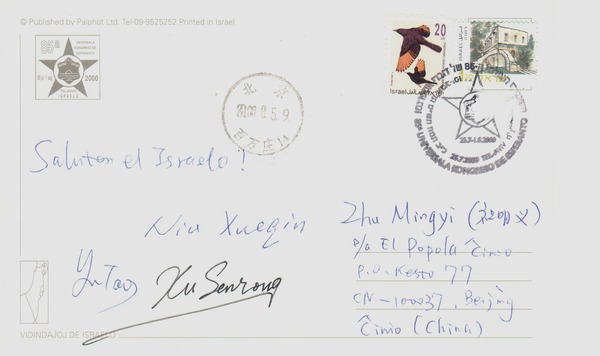 © Published by Palphot Ltd. Tel-09-9525252 Printed in Israel
85ª
UNIVERSALA
KONGRESO DE
ESPERANTO
2000
ISRAELO
北 京
5.9
百万庄14
20
Israel
ישראל
85ª UNIVERSALA KONGRESO DE ESPERANTO
25.7-1.8.2000
25.7.2000 TEL-AVIV
Saluton el Israelo!
Niu Xueqin
Yu Tao
Xu Senrong
Zhu Mingyi (祝明义)
p/a El Popola Ĉinio
P.O. Kesto 77
CN-100037, Beijing
Ĉinio (China)
VIDINDAĴOJ DE ISRAELO